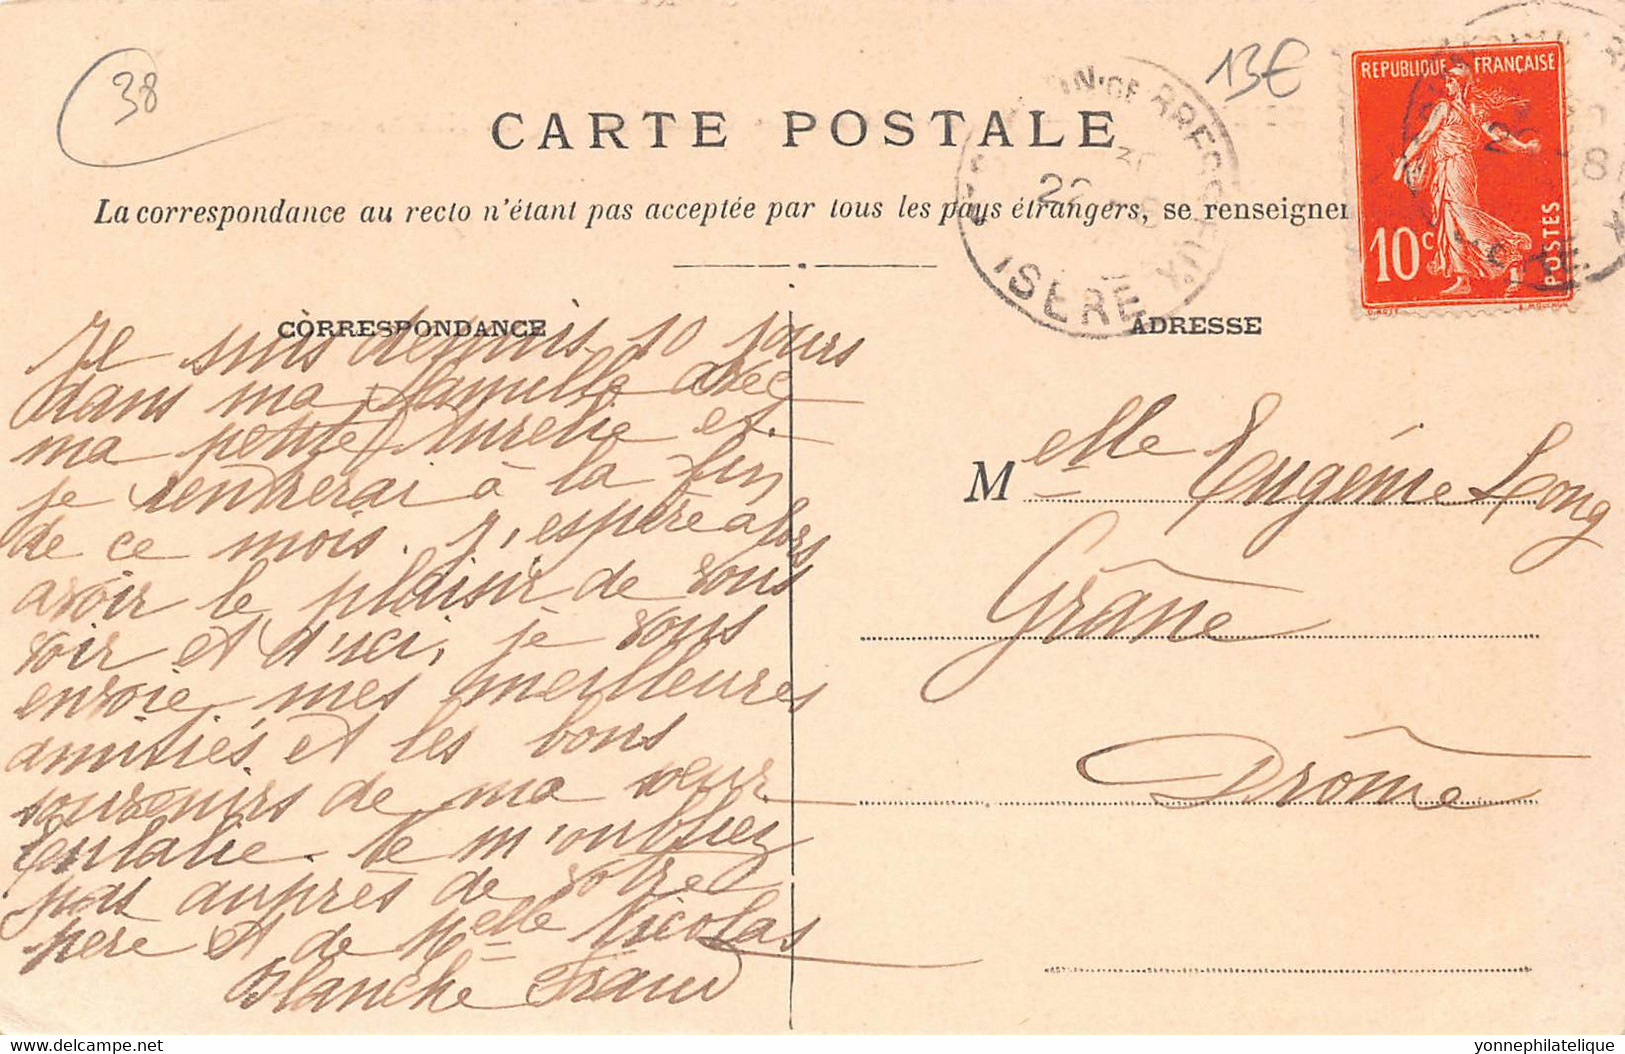 38
13€
CARTE POSTALE
REPUBLIQUE FRANÇAISE
10c POSTES
La correspondance au recto n'étant pas acceptée par tous les pays étrangers, se renseigner
ISÈRE
22
CORRESPONDANCE
ADRESSE
Je suis depuis 10 jours
dans ma famille avec
ma petite Aurelie et
je rentrerai à la fin
de ce mois. J'espère alors
avoir le plaisir de vous
voir et d'ici, je vous
envoie mes meilleures
amitiés et les bons
souvenirs de ma sœur
Eulalie. Ne m'oubliez
pas auprès de votre
père et de Melle Nicolas
Blanche Fraud
Melle Eugénie Long
Grâne
Drôme
delcampe.net
yonnephilatelique